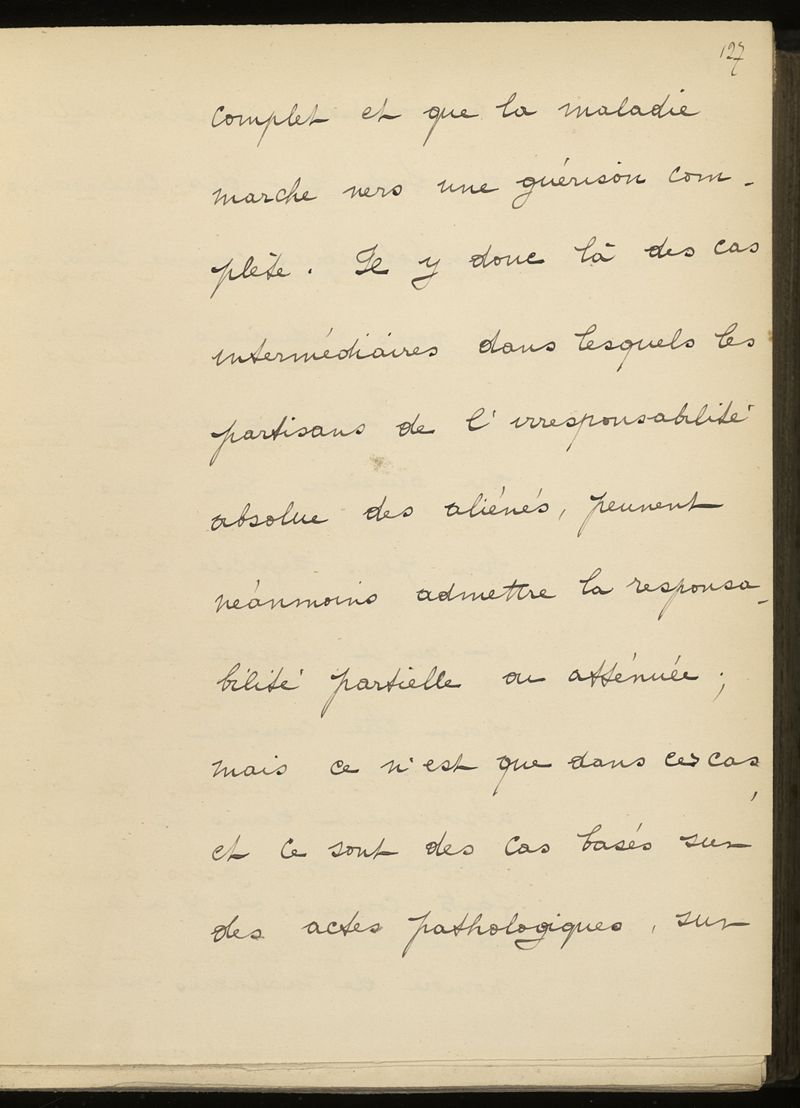 127
complet et que la maladie
marche vers une guérison com-
plète. Il y donc là des cas
intermédiaires dans lesquels les
partisans de l'irresponsabilité
absolue des aliénés, peuvent
néanmoins admettre la responsa-
bilité partielle ou atténuée ;
mais ce n'est que dans ces cas,
et ce sont des cas basés sur
des actes pathologiques, sur